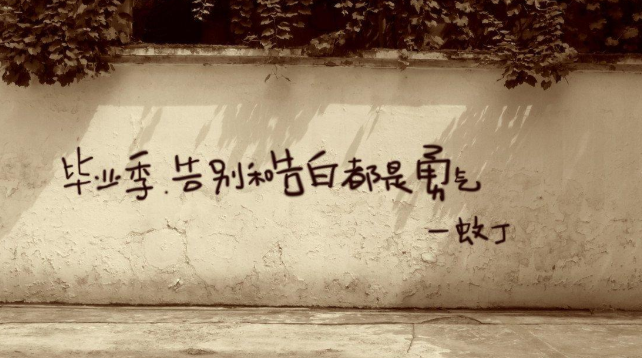 毕业季.告别和告白都是勇气
一蚊丁